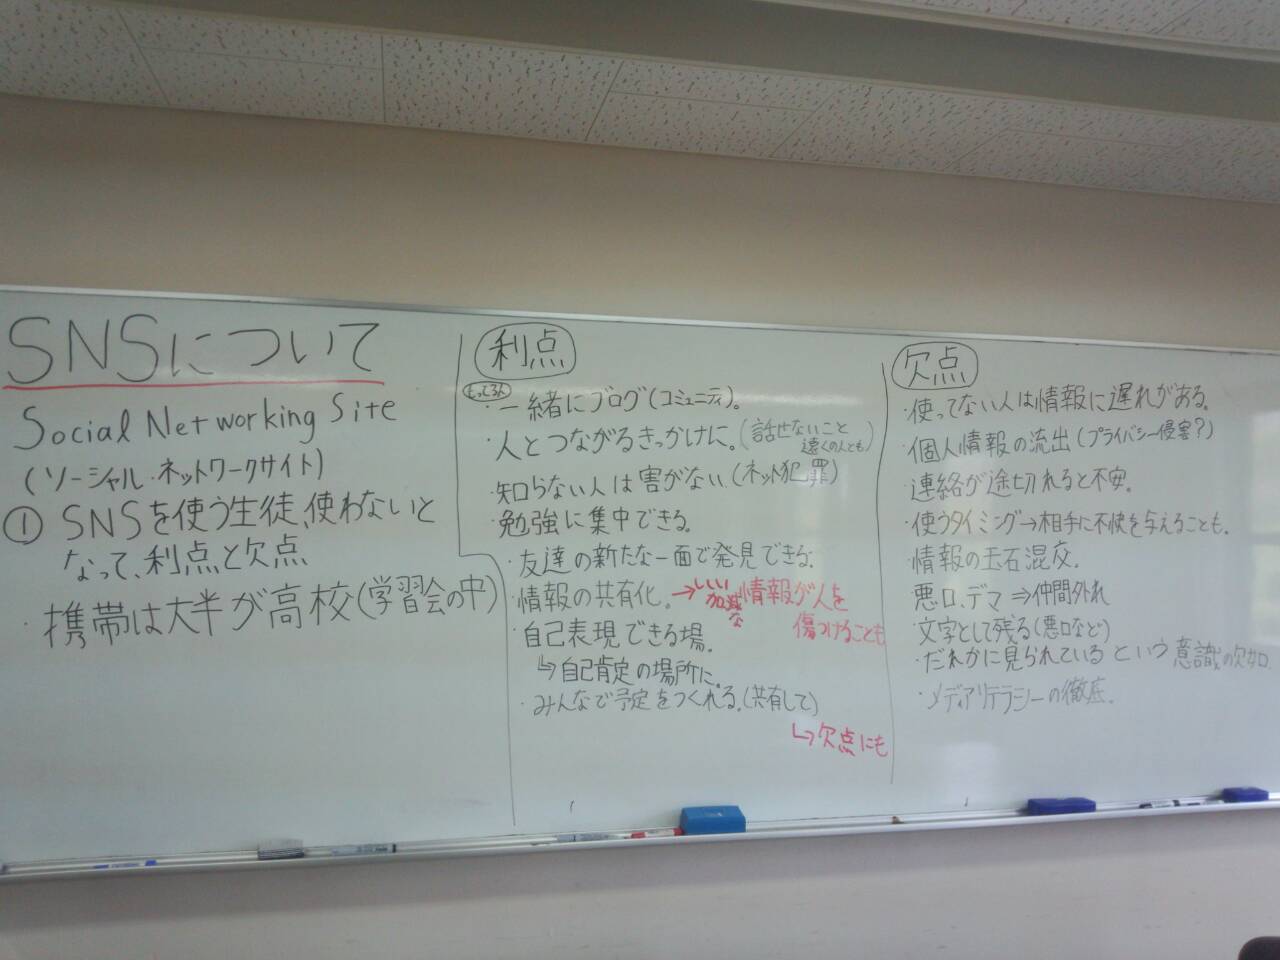 SNSについて
Social Networking Site
(ソーシャル・ネットワークサイト)
① SNSを使う生徒、使わないと
なって、利点と欠点
・携帯は大半が高校(学習会の中)
利点
・一緒にブログ(コミュニティ)。
・人とつながるきっかけに。(話せないこと
遠くの人とも)
・知らない人は害がない。(ネット犯罪)
・勉強に集中できる。
・友達の新たな一面で発見できる。
・情報の共有化。→いい加減な情報が人を
傷つけることも
・自己表現できる場。
↳自己肯定の場所に。
・みんなで予定をつくれる。(共有して)
↳欠点にも
欠点
・使ってない人は情報に遅れがある。
・個人情報の流出(プライバシー侵害?)
・連絡が途切れると不安。
・使うタイミング→相手に不快を与えることも。
・情報の玉石混交。
・悪口、デマ⇒仲間外れ
・文字として残る(悪口など)
・だれかに見られているという意識の欠如。
・メディアリテラシーの徹底。